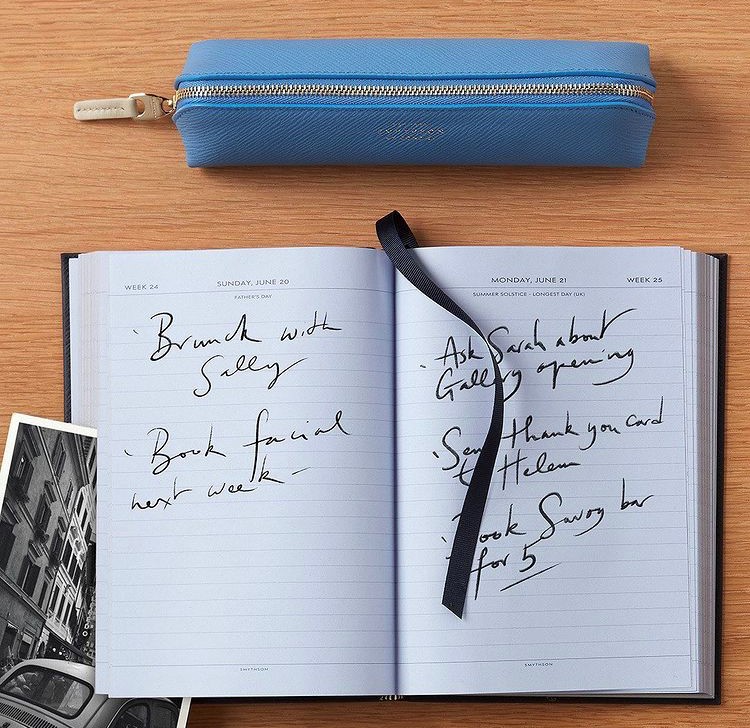 WEEK 24
SUNDAY, JUNE 20
FATHER'S DAY
· Brunch with
Sally
· Book facial
next week –
SMYTHSON
MONDAY, JUNE 21
WEEK 25
SUMMER SOLSTICE - LONGEST DAY (UK)
· Ask Sarah about
Gallery opening
· Send thank you card
to Helena
· Book Savoy bar
for 5
SMYTHSON